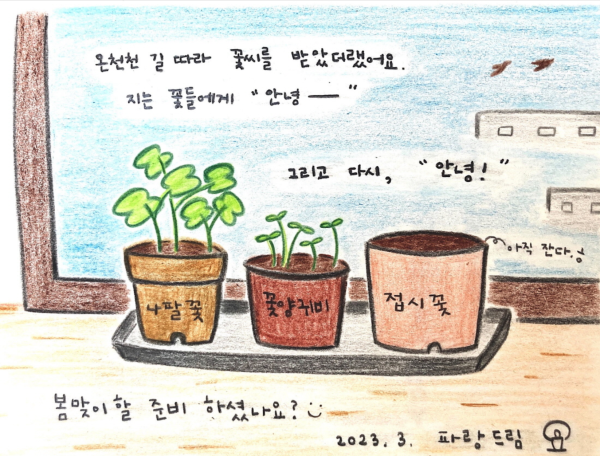 온천천 길 따라 꽃씨를 받았더랬어요.
지는 꽃들에게 "안녕 ― "
그리고 다시, "안녕!"
아직 잔다.
나팔꽃
꽃양귀비
접시꽃
봄맞이 할 준비 하셨나요?
2023. 3. 파랑드림